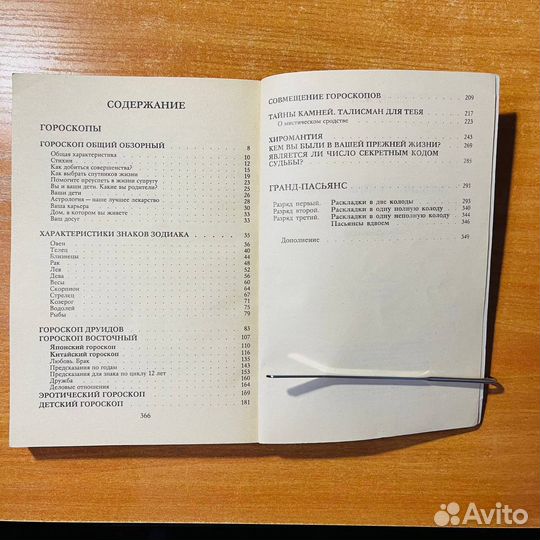 СОДЕРЖАНИЕ
ГОРОСКОПЫ
ГОРОСКОП ОБЩИЙ ОБЗОРНЫЙ 8
Общая характеристика 10
Стихии 12
Как добиться совершенства? 15
Как выбрать спутников жизни 19
Помогите преуспеть в жизни супругу 21
Вы и ваши дети. Какие вы родители? 22
Ваши дети 25
Астрология — наше лучшее лекарство 28
Ваша карьера 30
Дом, в котором вы живете 33
Ваш досуг 33
ХАРАКТЕРИСТИКИ ЗНАКОВ ЗОДИАКА 35
Овен 36
Телец 40
Близнецы 44
Рак 48
Лев 52
Дева 56
Весы 60
Скорпион 64
Стрелец 67
Козерог 71
Водолей 75
Рыбы 79
ГОРОСКОП ДРУИДОВ 83
ГОРОСКОП ВОСТОЧНЫЙ 107
Японский гороскоп 110
Китайский гороскоп 116
Любовь. Брак 135
Предсказания по годам 143
Предсказания для знака по циклу 12 лет 153
Дружба 160
Деловые отношения 164
ЭРОТИЧЕСКИЙ ГОРОСКОП 169
ДЕТСКИЙ ГОРОСКОП 181
366
СОВМЕЩЕНИЕ ГОРОСКОПОВ 209
ТАЙНЫ КАМНЕЙ. ТАЛИСМАН ДЛЯ ТЕБЯ 217
О мистическом сродстве 223
ХИРОМАНТИЯ 243
КЕМ ВЫ БЫЛИ В ВАШЕЙ ПРЕЖНЕЙ ЖИЗНИ? 269
ЯВЛЯЕТСЯ ЛИ ЧИСЛО СЕКРЕТНЫМ КОДОМ
СУДЬБЫ? 285
ГРАНД-ПАСЬЯНС 291
Разряд первый. Раскладки в две колоды 293
Разряд второй. Раскладки в одну полную колоду 320
Разряд третий. Раскладки в одну неполную колоду 344
Пасьянсы вдвоем 346
Дополнение 349
Avito